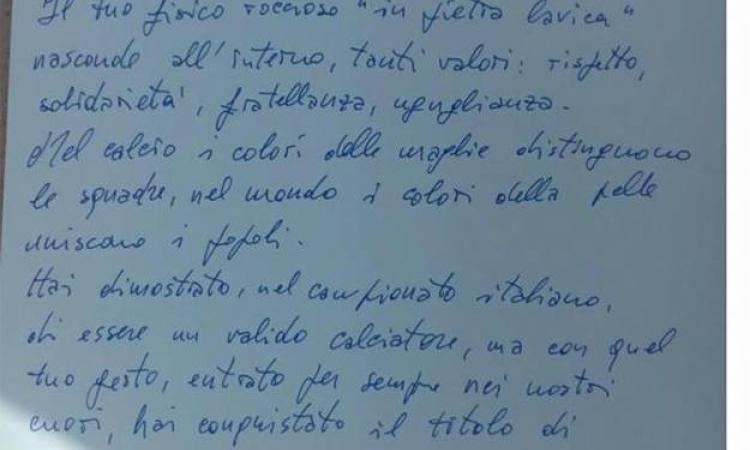 Il tuo fisico roccioso "in pietra lavica"
nasconde all'interno, tanti valori: rispetto,
solidarietà, fratellanza, uguglianza.
Nel calcio i colori delle maglie distinguono
le squadre, nel mondo i colori della pelle
uniscono i popoli.
Hai dimostrato, nel campionato italiano,
di essere un valido calciatore, ma con quel
tuo gesto, entrato per sempre nei nostri
cuori, hai conquistato il titolo di